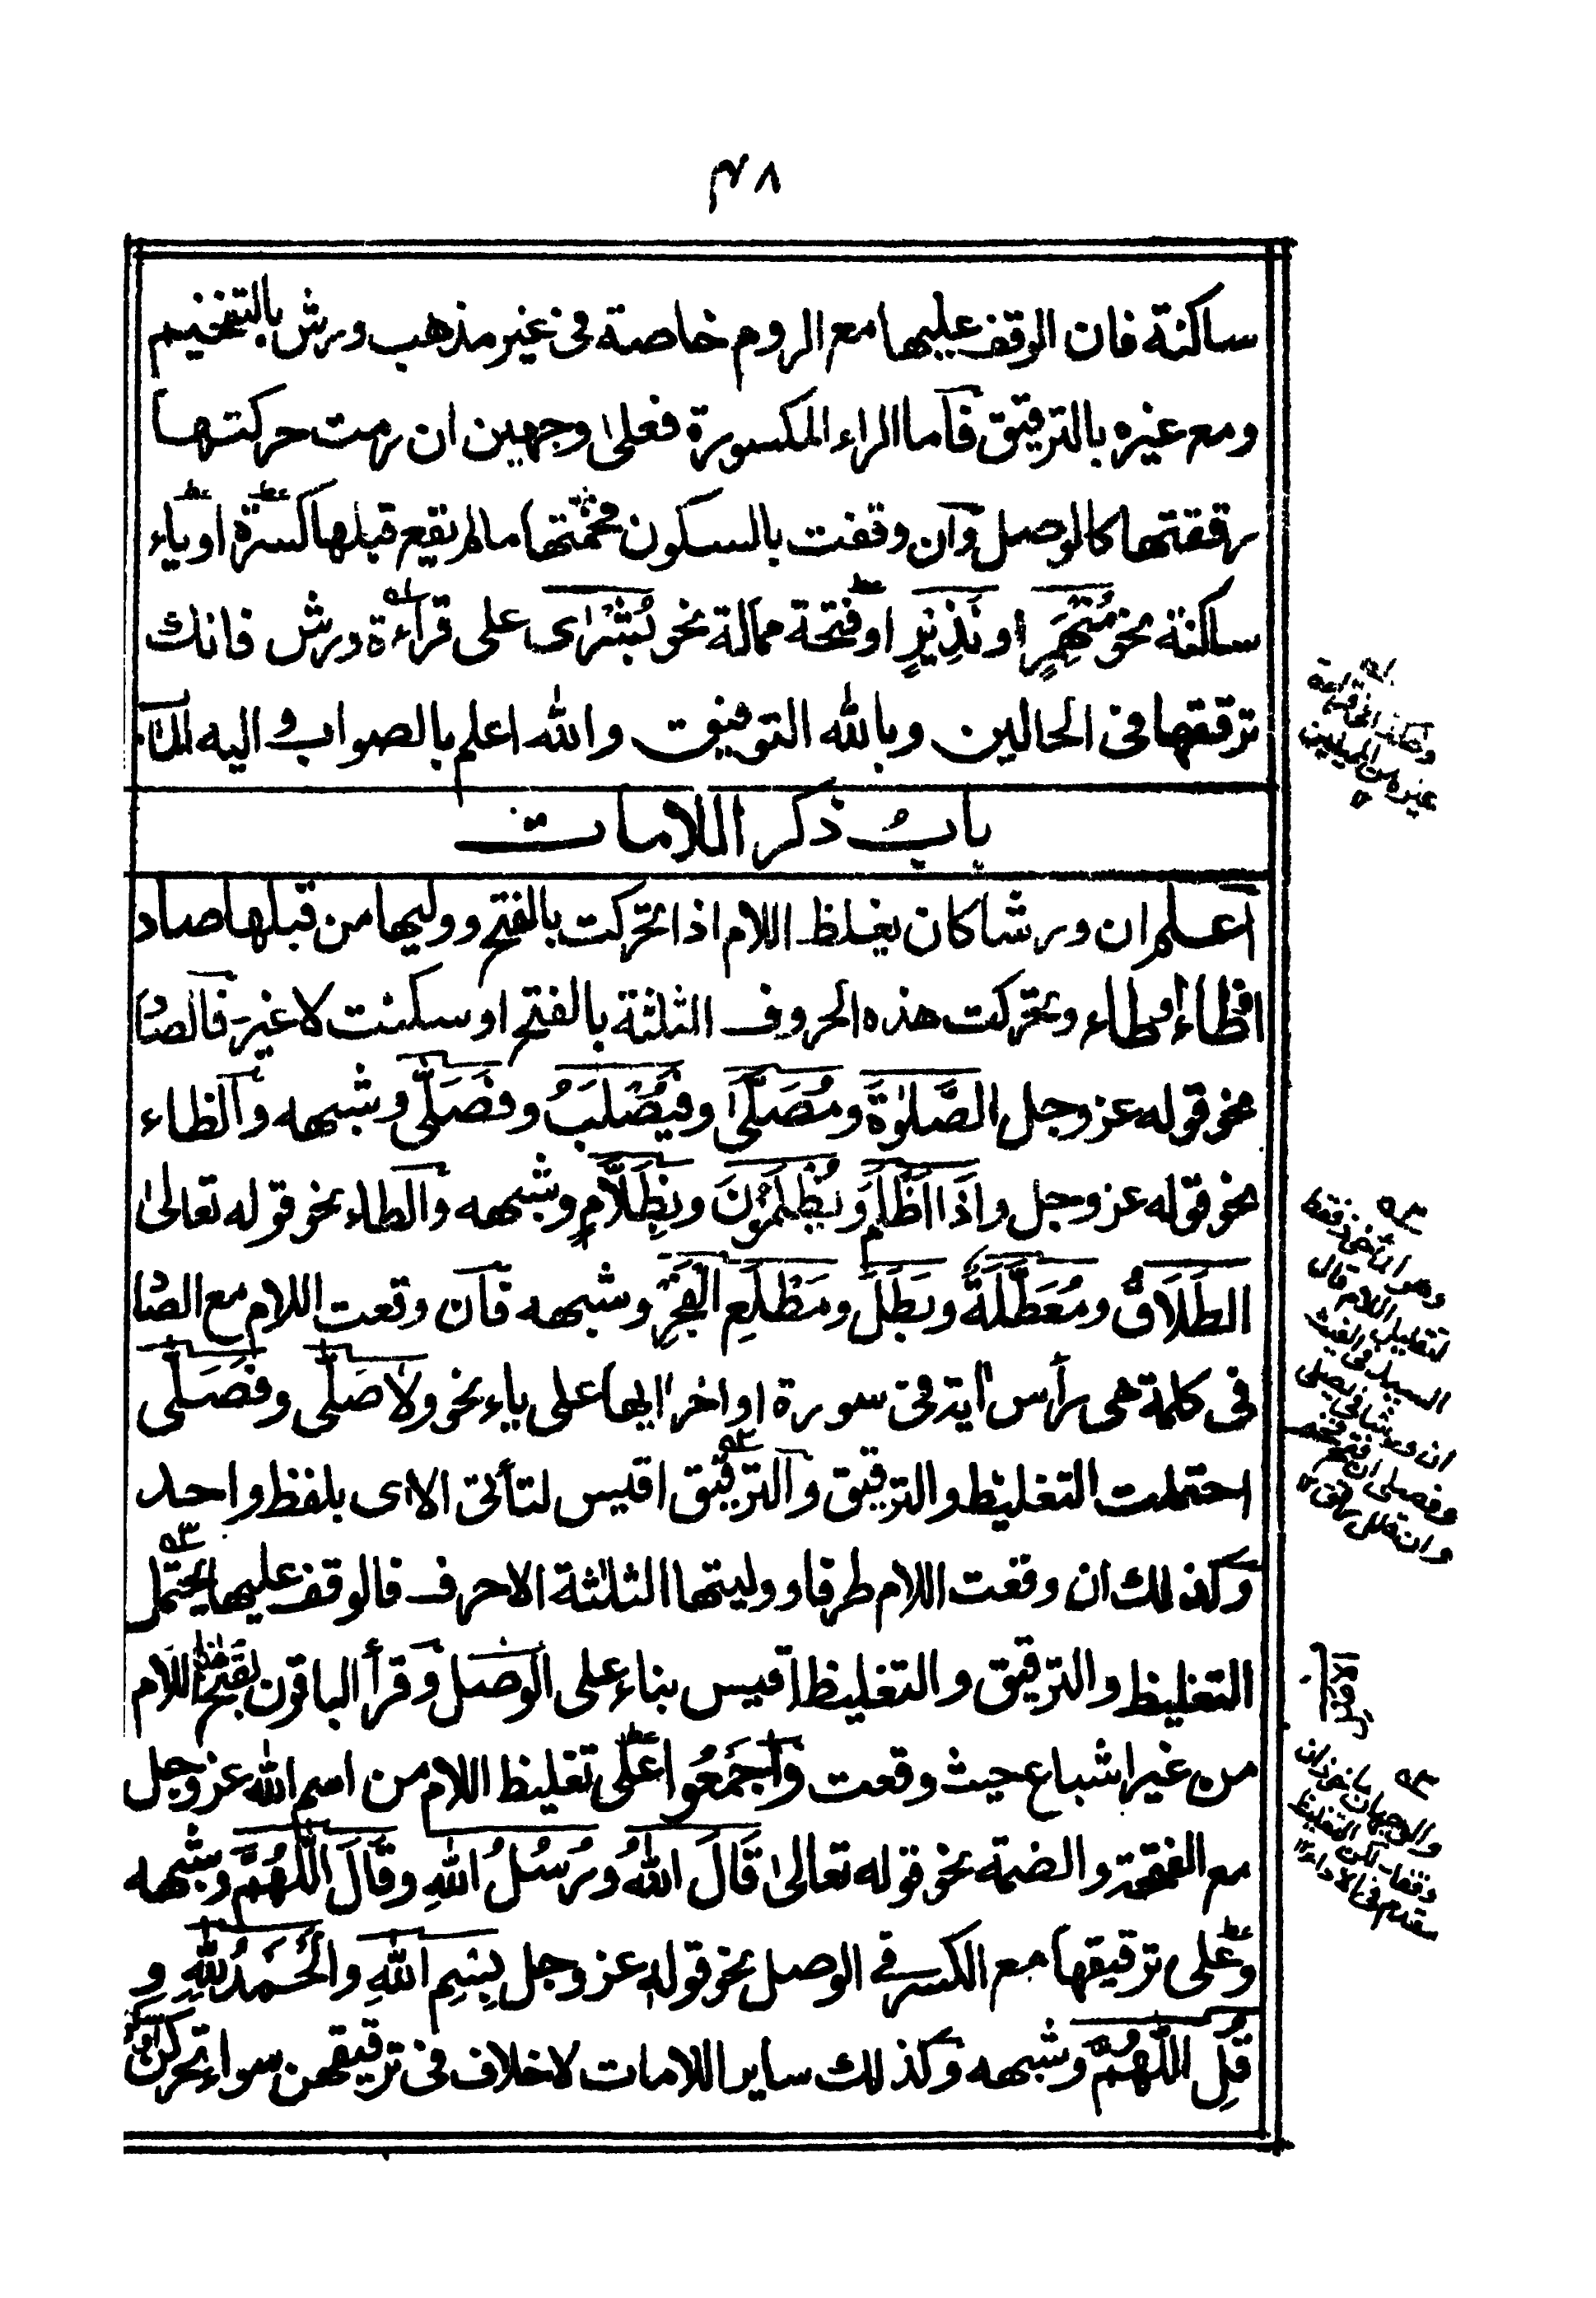 ٤٨
ساكنة فان الوقف عليها مع الروم خاصة فى غير مذهب ورش بالتفخيم
ومع غيره بالترقيق فاما الراء المكسورة فعلى وجهين ان رمت حركتها
رققتها كالوصل وان وقفت بالسكون فخمتها مالم يقع قبلها كسرة او ياء
ساكنة نحو مُنْهَمِرٍ او نَذِيْرٍ او فتحة ممالة نحو بُشْرَاى على قراءة ورش فانك
ترققها فى الحالين وبالله التوفيق والله اعلم بالصواب و اليه المآب
باب ذكر اللامات
اعلم ان ورشا كان يغلظ اللام اذا تحركت بالفتح ووليها من قبلها صاد
اوظاء اوطاء وتحركت هذه الحروف الثلثة بالفتح او سكنت لا غير فالصاد
نحو قوله عز وجل الصَّلٰوةَ ومُصَلًّى وفَيُصْلَبُ وفَصَلّٰى وشبهه والظاء
نحو قوله عز وجل واِذَا اَظْلَمَ ويُظْلَمُوْنَ وبِظَلَّامٍ وشبهه والطاء نحو قوله تعالى
الطَّلَاقُ ومُعَطَّلَةٌ وبَطَلَ ومَطْلَعِ الْفَجْرِ وشبهه فان وقعت اللام مع الصاد
فى كلمة هى رأس اية فى سورة اواخر ايها على ياء نحو ولا صَلّٰى وفَصَلّٰى
احتملت التغليظ والترقيق والترقيق اقيس لتأتى الاى بلفظ واحد
وكذلك ان وقعت اللام طرفا ووليتها الثلٰثة الاحرف فالوقف عليها يحتمل
التغليظ والترقيق والتغليظ اقيس بناء على الوصل وقرأ الباقون بفتح اللام
من غير اشباع حيث وقعت واجمَعُوا على تغليظ اللام من اسم الله عز وجل
مع الفتحة والضمة نحو قوله تعالى قَالَ اللهُ ورُسُلُ اللهِ وقَالَ اللّٰهُمَّ وشبهه
وعلى ترقيقها مع الكسر فى الوصل نحو قوله عز وجل بِسْمِ اللهِ والْحَمْدُ لِلّٰهِ و
قُلِ اللّٰهُمَّ وشبهه وكذلك ساير اللامات لا خلاف فى ترقيقهن سواء تحركن
غيره من المميلين
وان قلل رقق